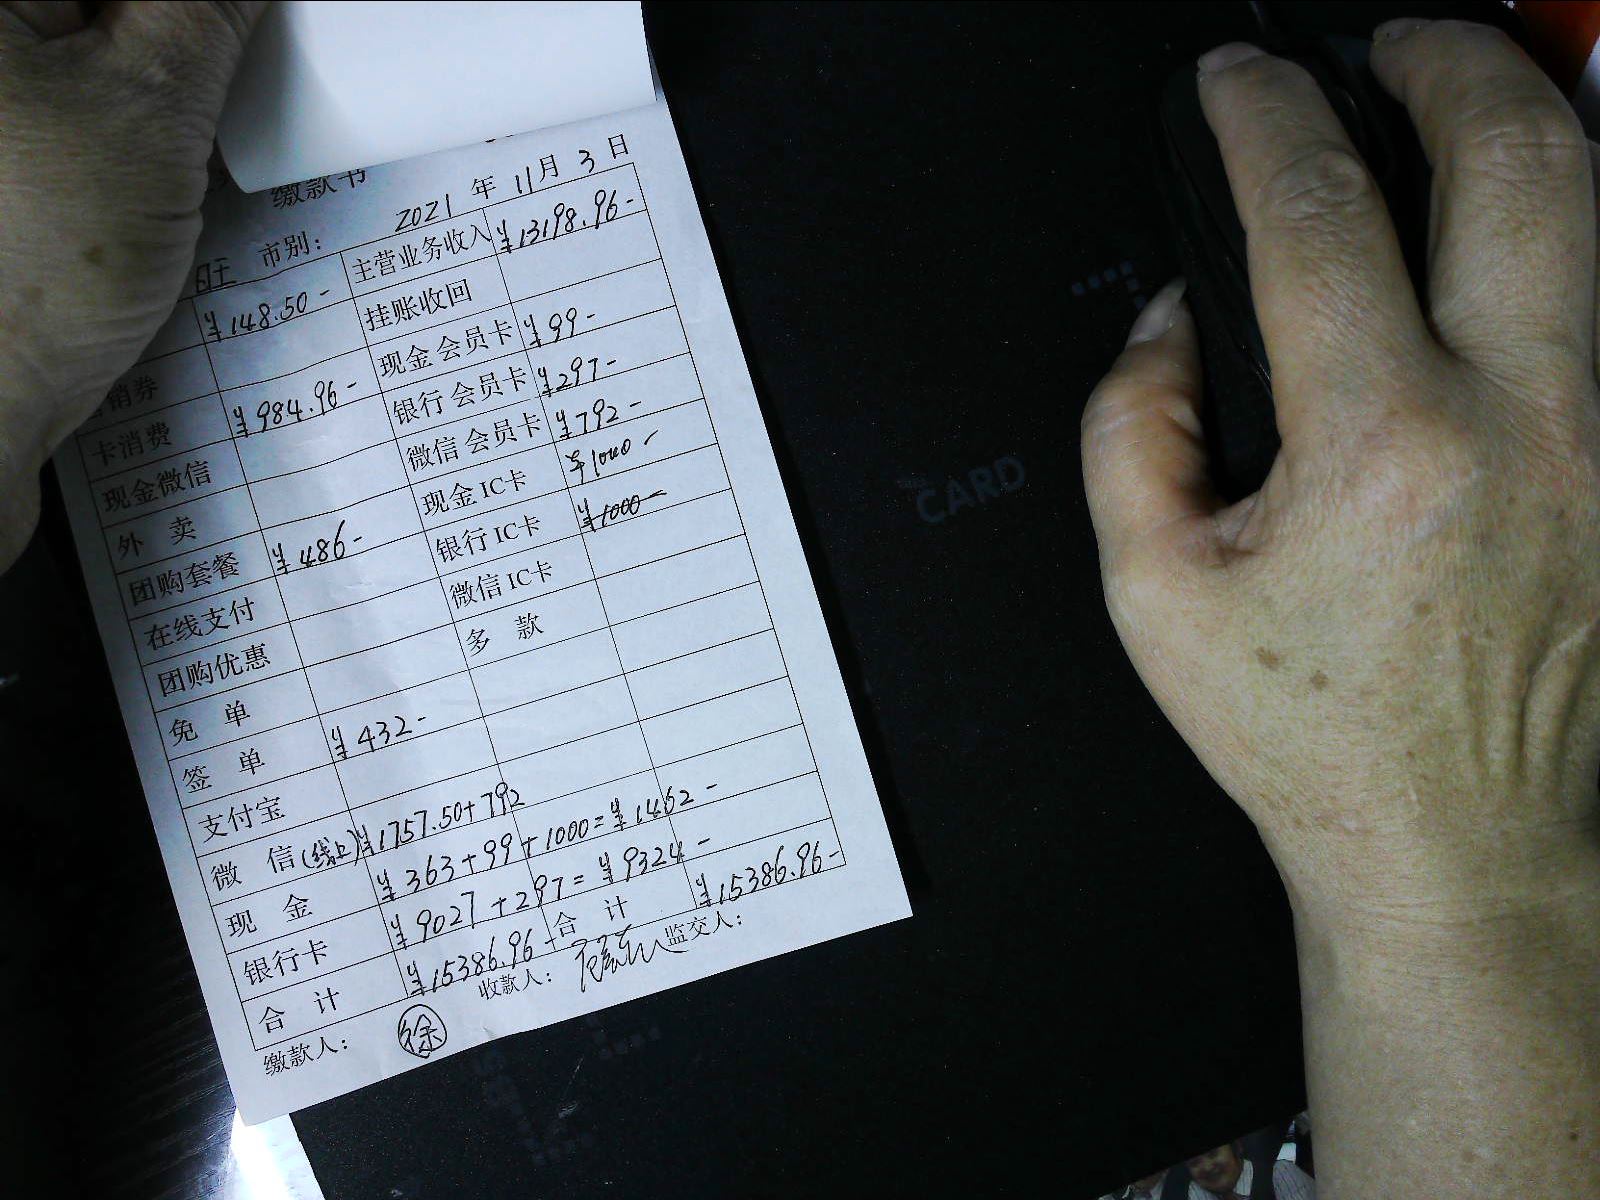 缴款书
2021 年 11月 3 日
旺 市别：
¥148.50- 主营业务收入 ¥13198.96-
销券 挂账收回
卡消费 ¥984.96- 现金会员卡 ¥99-
现金微信 银行会员卡 ¥297-
外 卖 微信会员卡 ¥792-
团购套餐 ¥486- 现金IC卡 ¥1000-
在线支付 银行IC卡 ¥1000-
团购优惠 微信IC卡
免 单 多 款
签 单 ¥432-
支付宝
微 信(线上) ¥1757.50+792
现 金 ¥363+99+1000=¥1462-
银行卡 ¥9027+297=¥9324-
合 计 ¥15386.96- 合 计 ¥15386.96-
缴款人： 徐 收款人： 监交人：
CARD